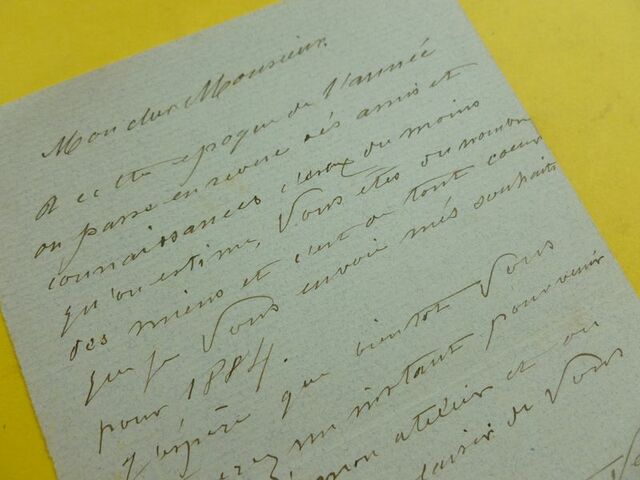 Mon cher Monsieur.
A cette epoque de l'année
on passe en revue ses amis et
connaissances ceux du moins
qu'on estime, Vous êtes du nombre
des miens et c'est de tout coeur
que je Vous envoie més souhaits
pour 1884.
J'espère que bientot Vous
un instant pour venir
mon atelier et au
plaisir de Vous